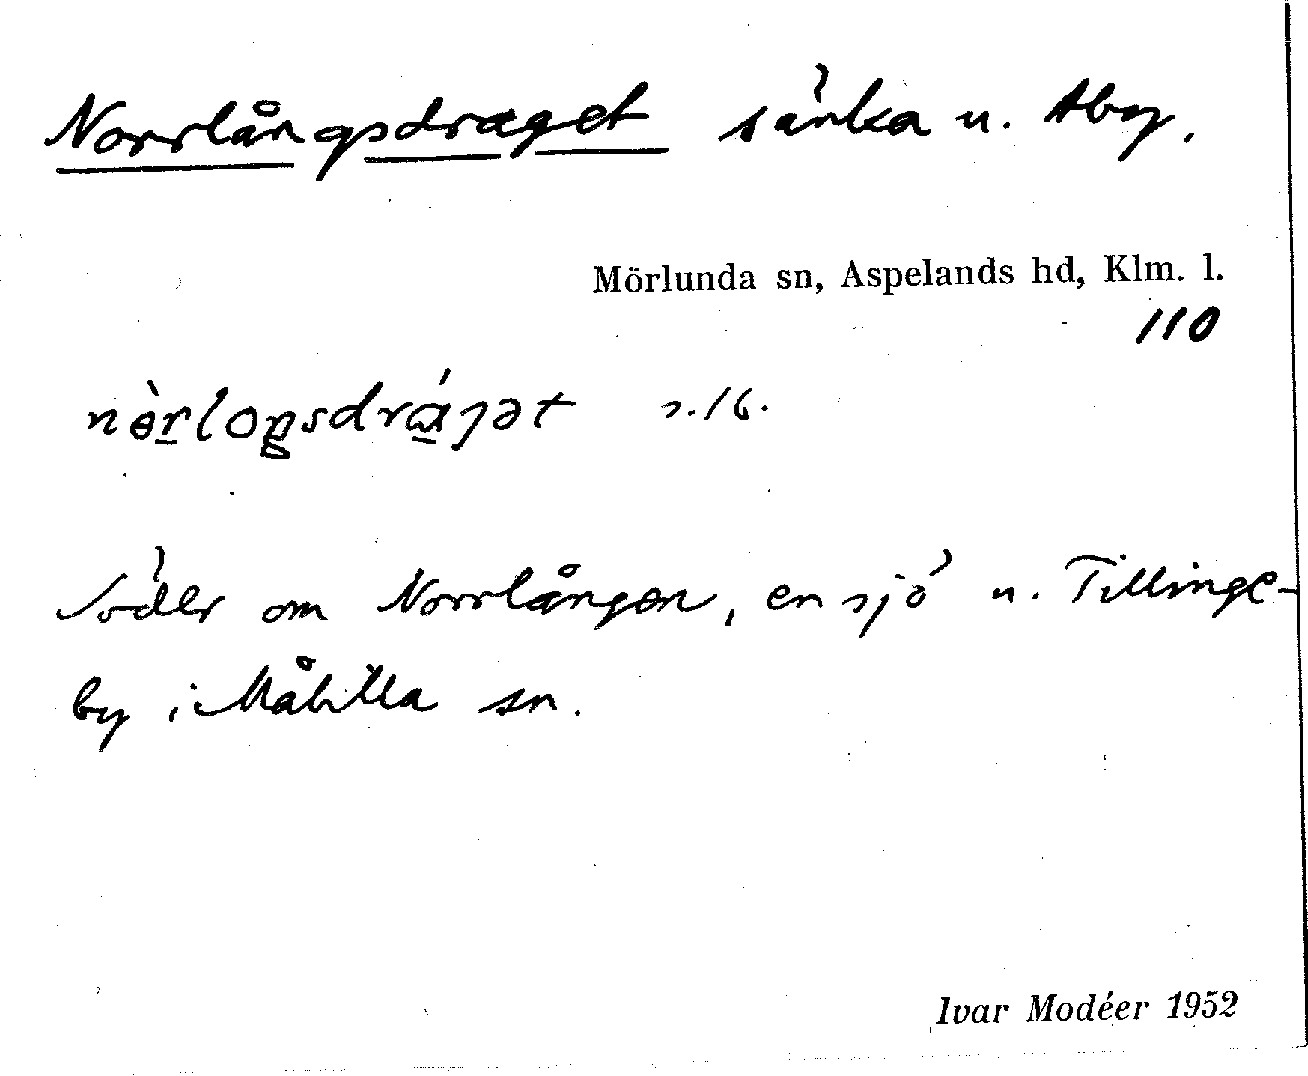 Norrlångsdraget sänka u. Åby.
Mörlunda sn, Aspelands hd, Klm. l.
110
s. 16.
Söder om Norrlången, en sjö u. Tillinge-
by i Målilla sn.
Ivar Modéer 1952